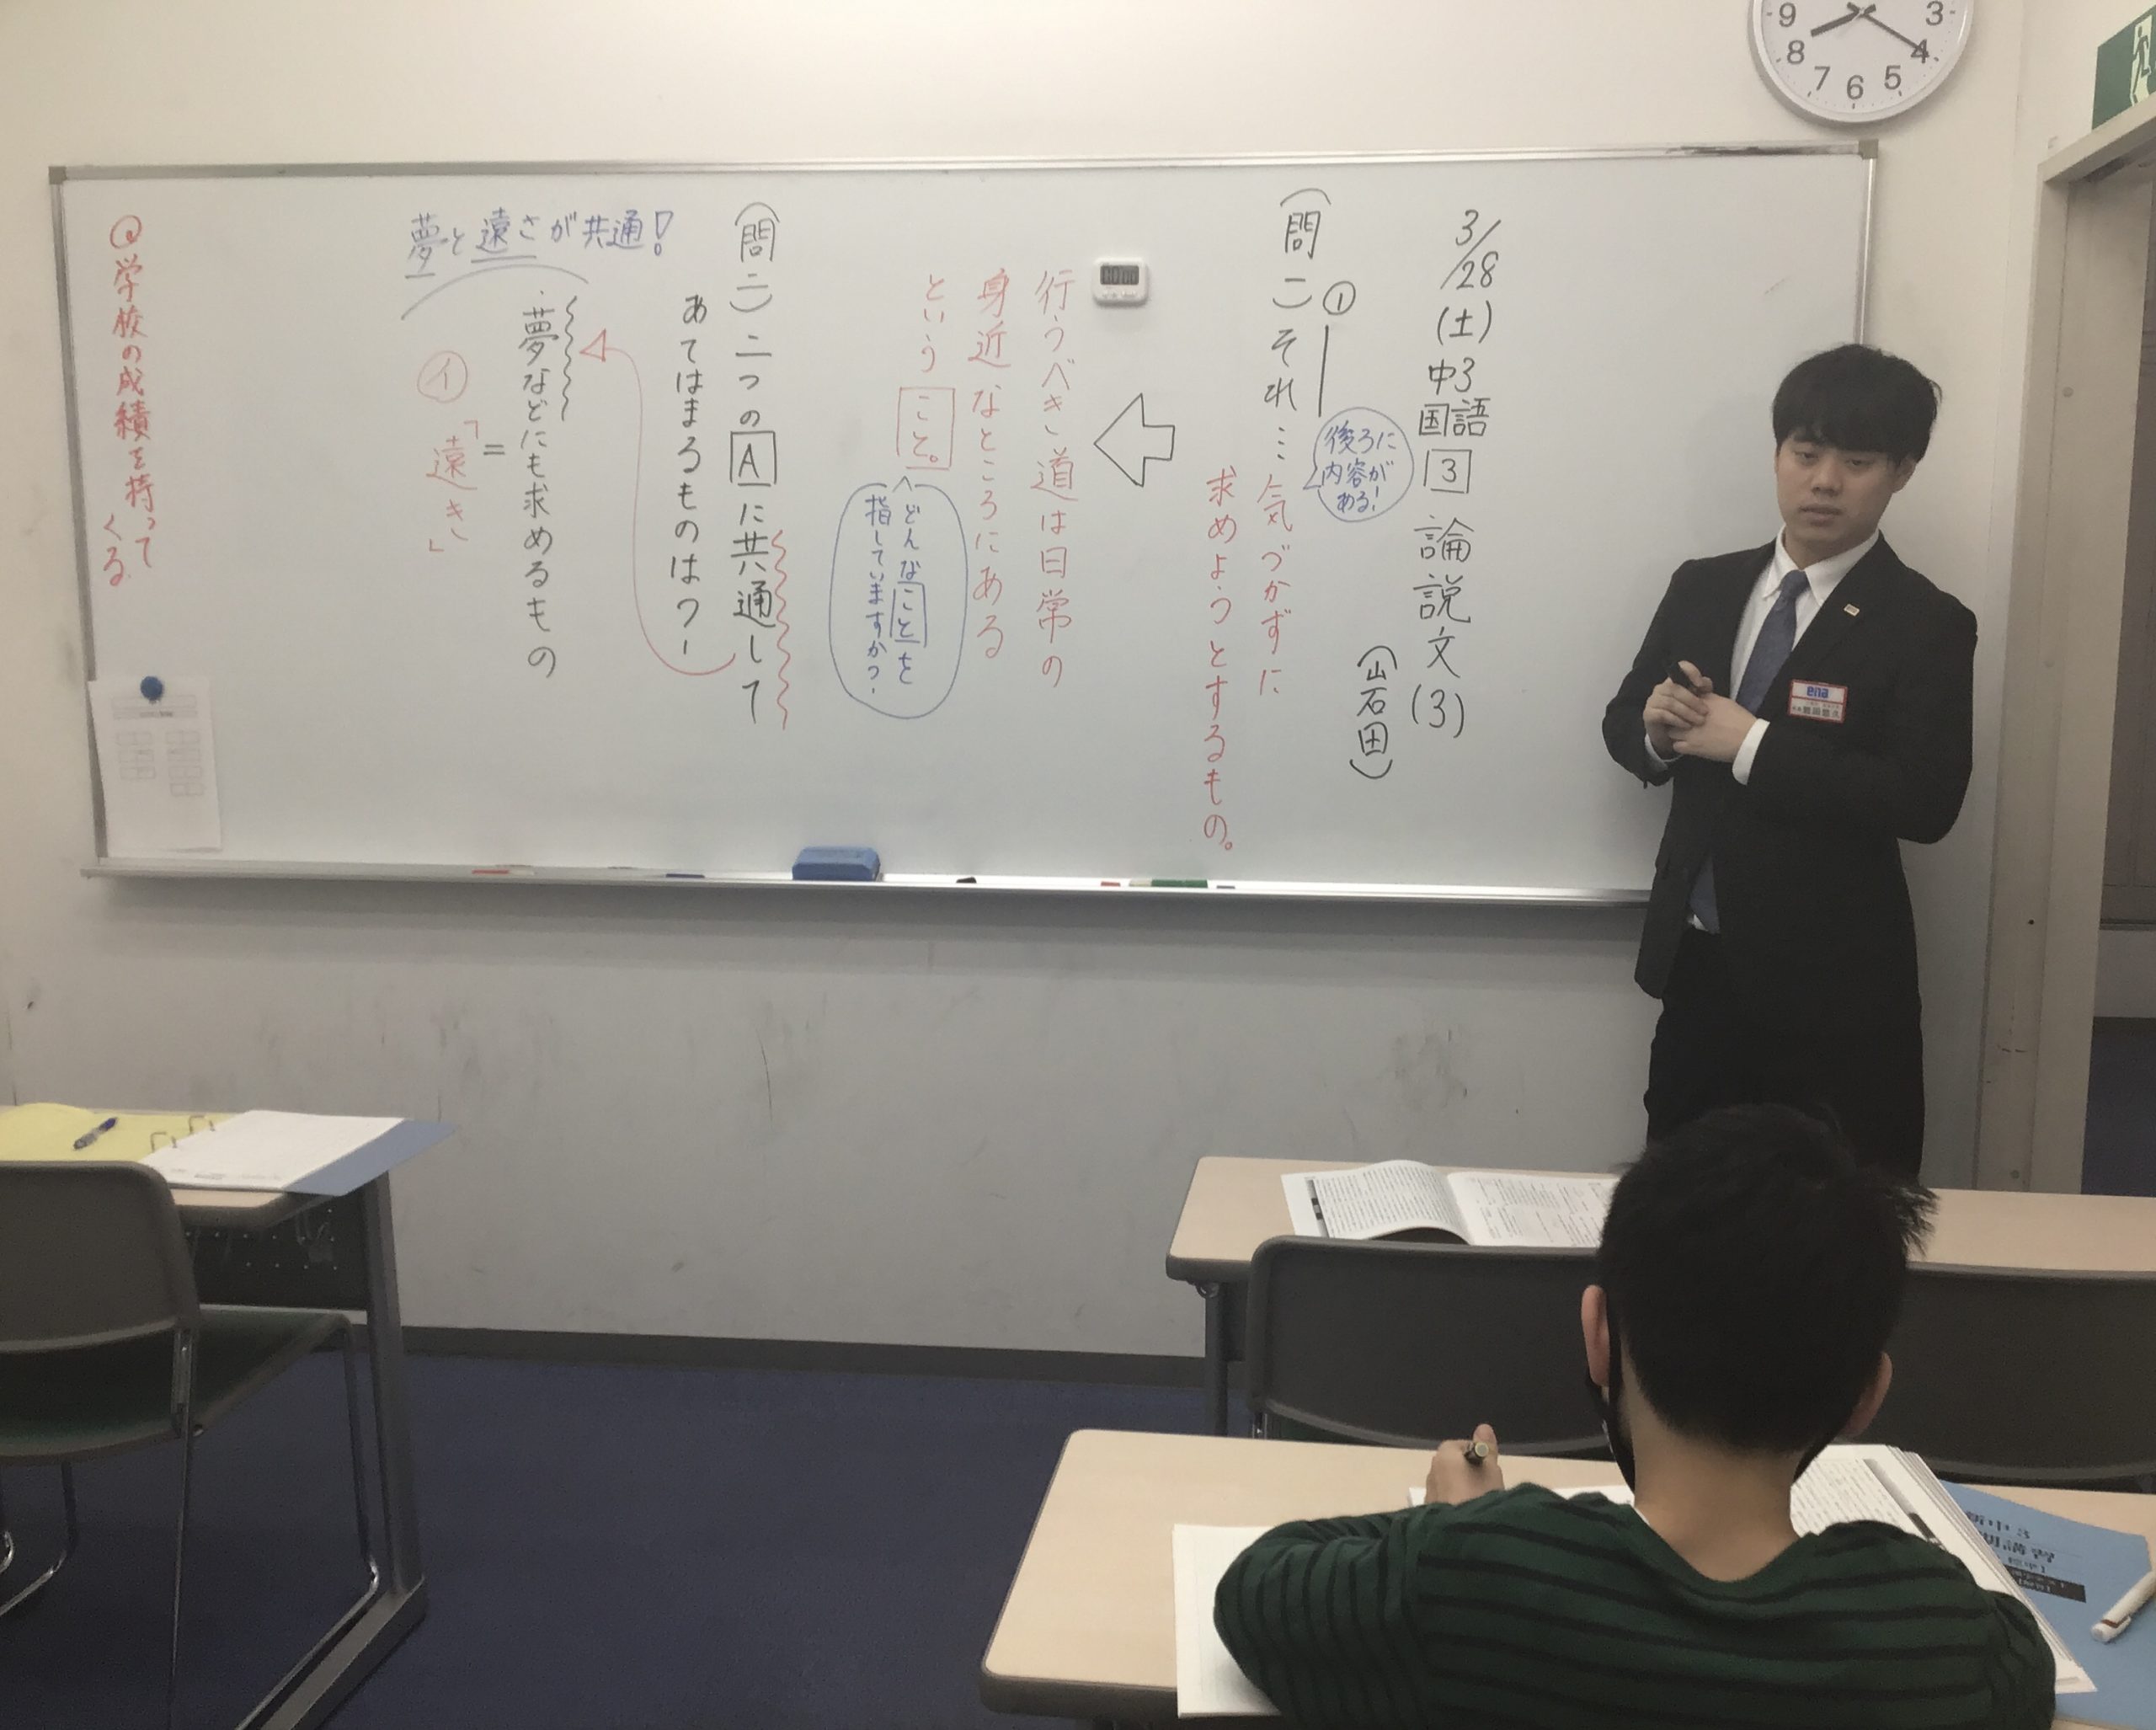 3/28(土)中3国語 3 論説文(3)
(岩田)
①
(問一)それ…気づかずに
求めようとするもの。
後ろに
内容が
ある!
行うべき道は日常の
身近なところにある
という こと。
どんなことを
指していますか?
(問二)二つの A に共通して
あてはまるものは?
夢と遠さが共通!
・夢などにも求めるもの
=
イ「遠き」
◎学校の成績を持って
くる。
ena
9
8
7
6
5
4
3
新中3
期講習